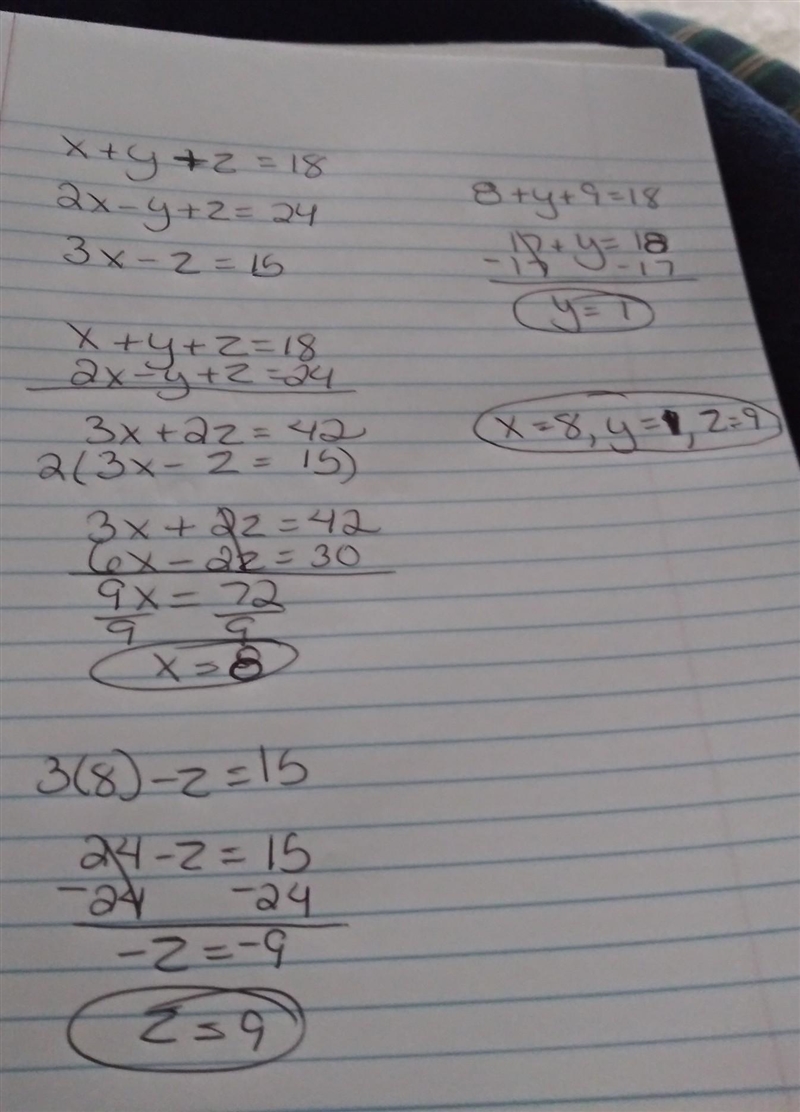 x+y+z=18
2x-y+z=24
3x-z=15
x+y+z=18
2x-y+z=24
3x+2z=42
2(3x-z=15)
3x+2z=42
6x-2z=30
9x=72
9 9
x=8
3(8)-z=15
24-z=15
-24 -24
-z=-9
z=9
8+y+9=18
17+y=18
-17 -17
y=1
x=8, y=1, z=9